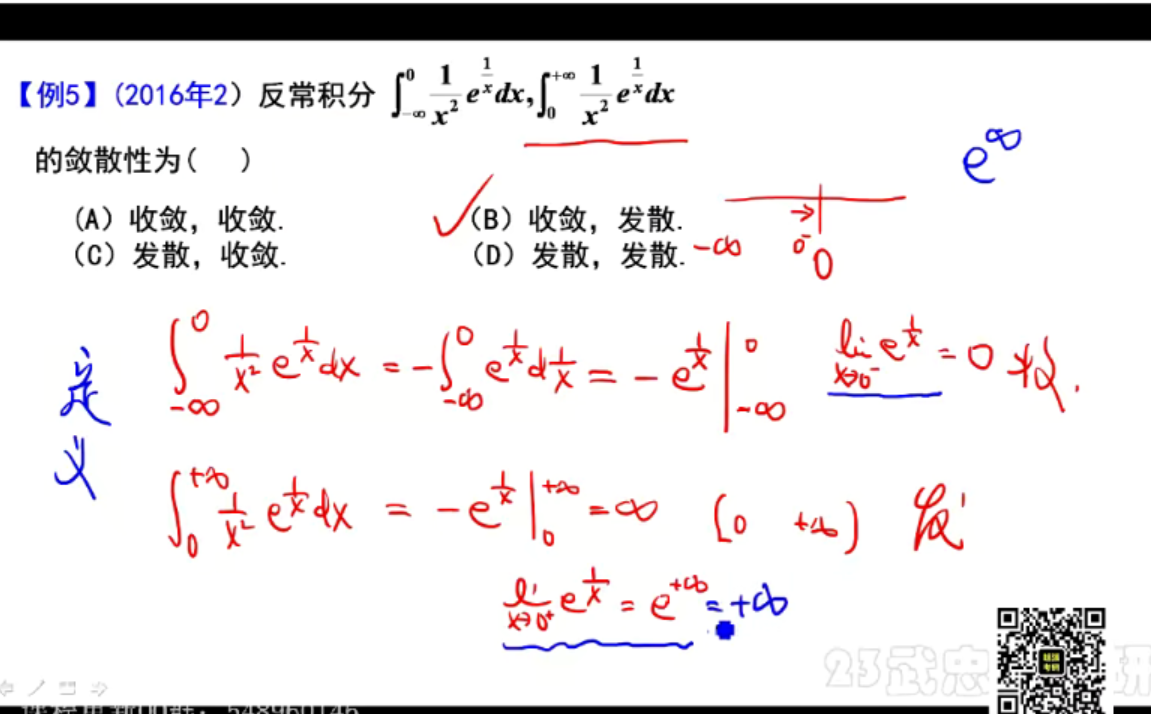 【例5】(2016年2) 反常积分 ∫_{-∞}^{0} 1/x² e^{1/x} dx, ∫_{0}^{+∞} 1/x² e^{1/x} dx
e^∞
的敛散性为( )
(A) 收敛, 收敛. ✓(B) 收敛, 发散.
(C) 发散, 收敛. (D) 发散, 发散.
-∞ 0⁻ 0
定义
∫_{-∞}^{0} 1/x² e^{1/x} dx = -∫_{-∞}^{0} e^{1/x} d 1/x = -e^{1/x} |_{-∞}^{0} lim_{x→0⁻} e^{1/x} = 0 收.
∫_{0}^{+∞} 1/x² e^{1/x} dx = -e^{1/x} |_{0}^{+∞} = ∞ [0 +∞) 发
lim_{x→0⁺} e^{1/x} = e^{+∞} = +∞
23武忠
研